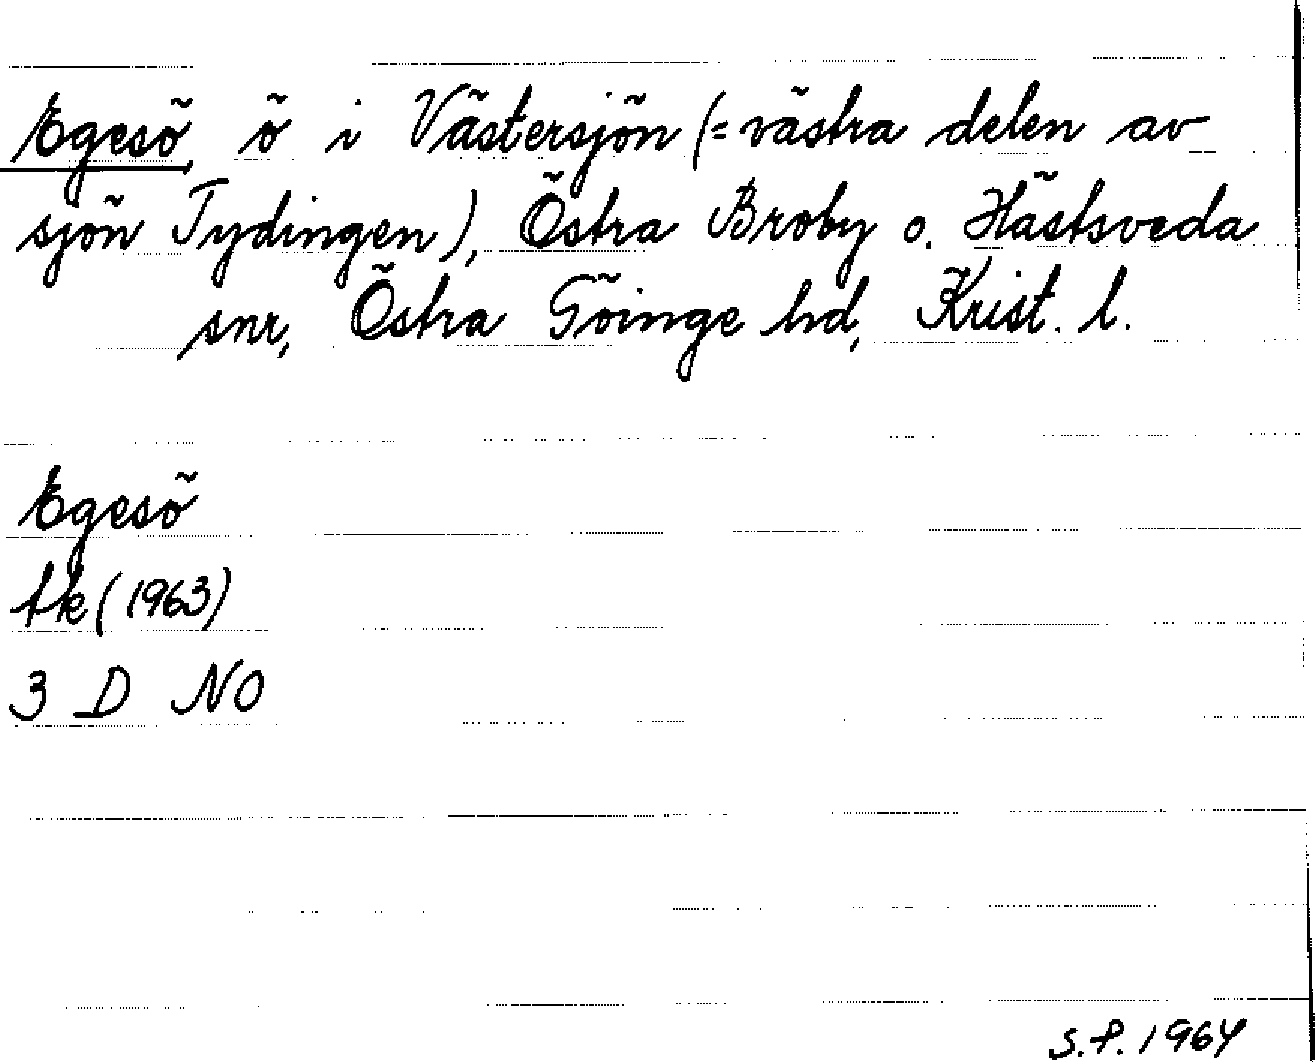 Egesö, ö i Västersjön (= västra delen av
sjön Tydingen), Östra Broby o. Hästsveda
snr, Östra Göinge hd, Krist. l.
Egesö
tk (1963)
3 D NO
S.P. 1964